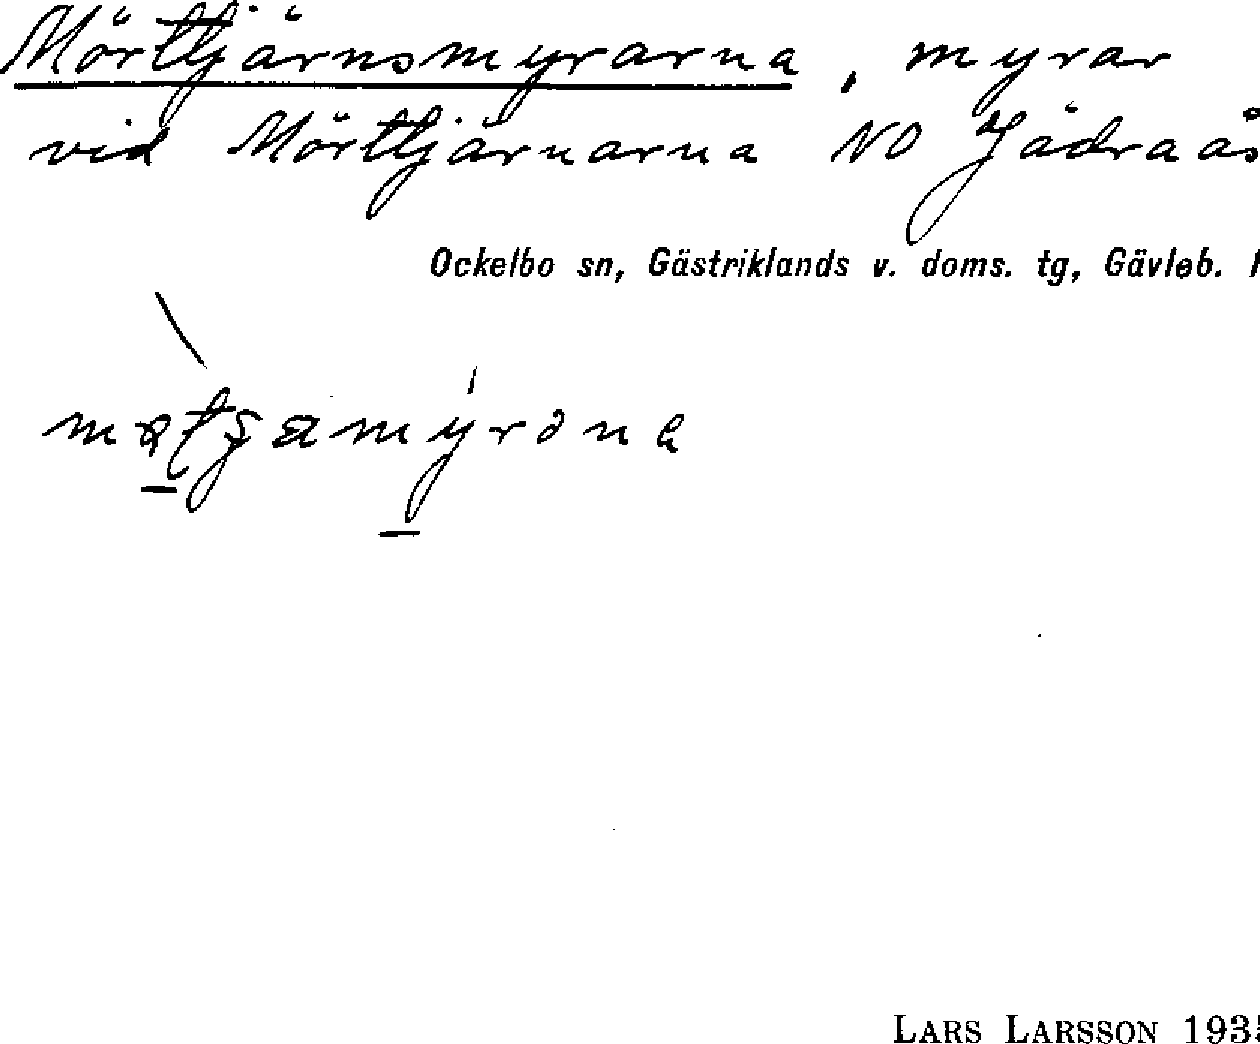 Mörttjärnsmyrarna, myrar
vid Mörttjärnarna NO Jädraås
Ockelbo sn, Gästriklands v. doms. tg, Gävleb.
LARS LARSSON 1935